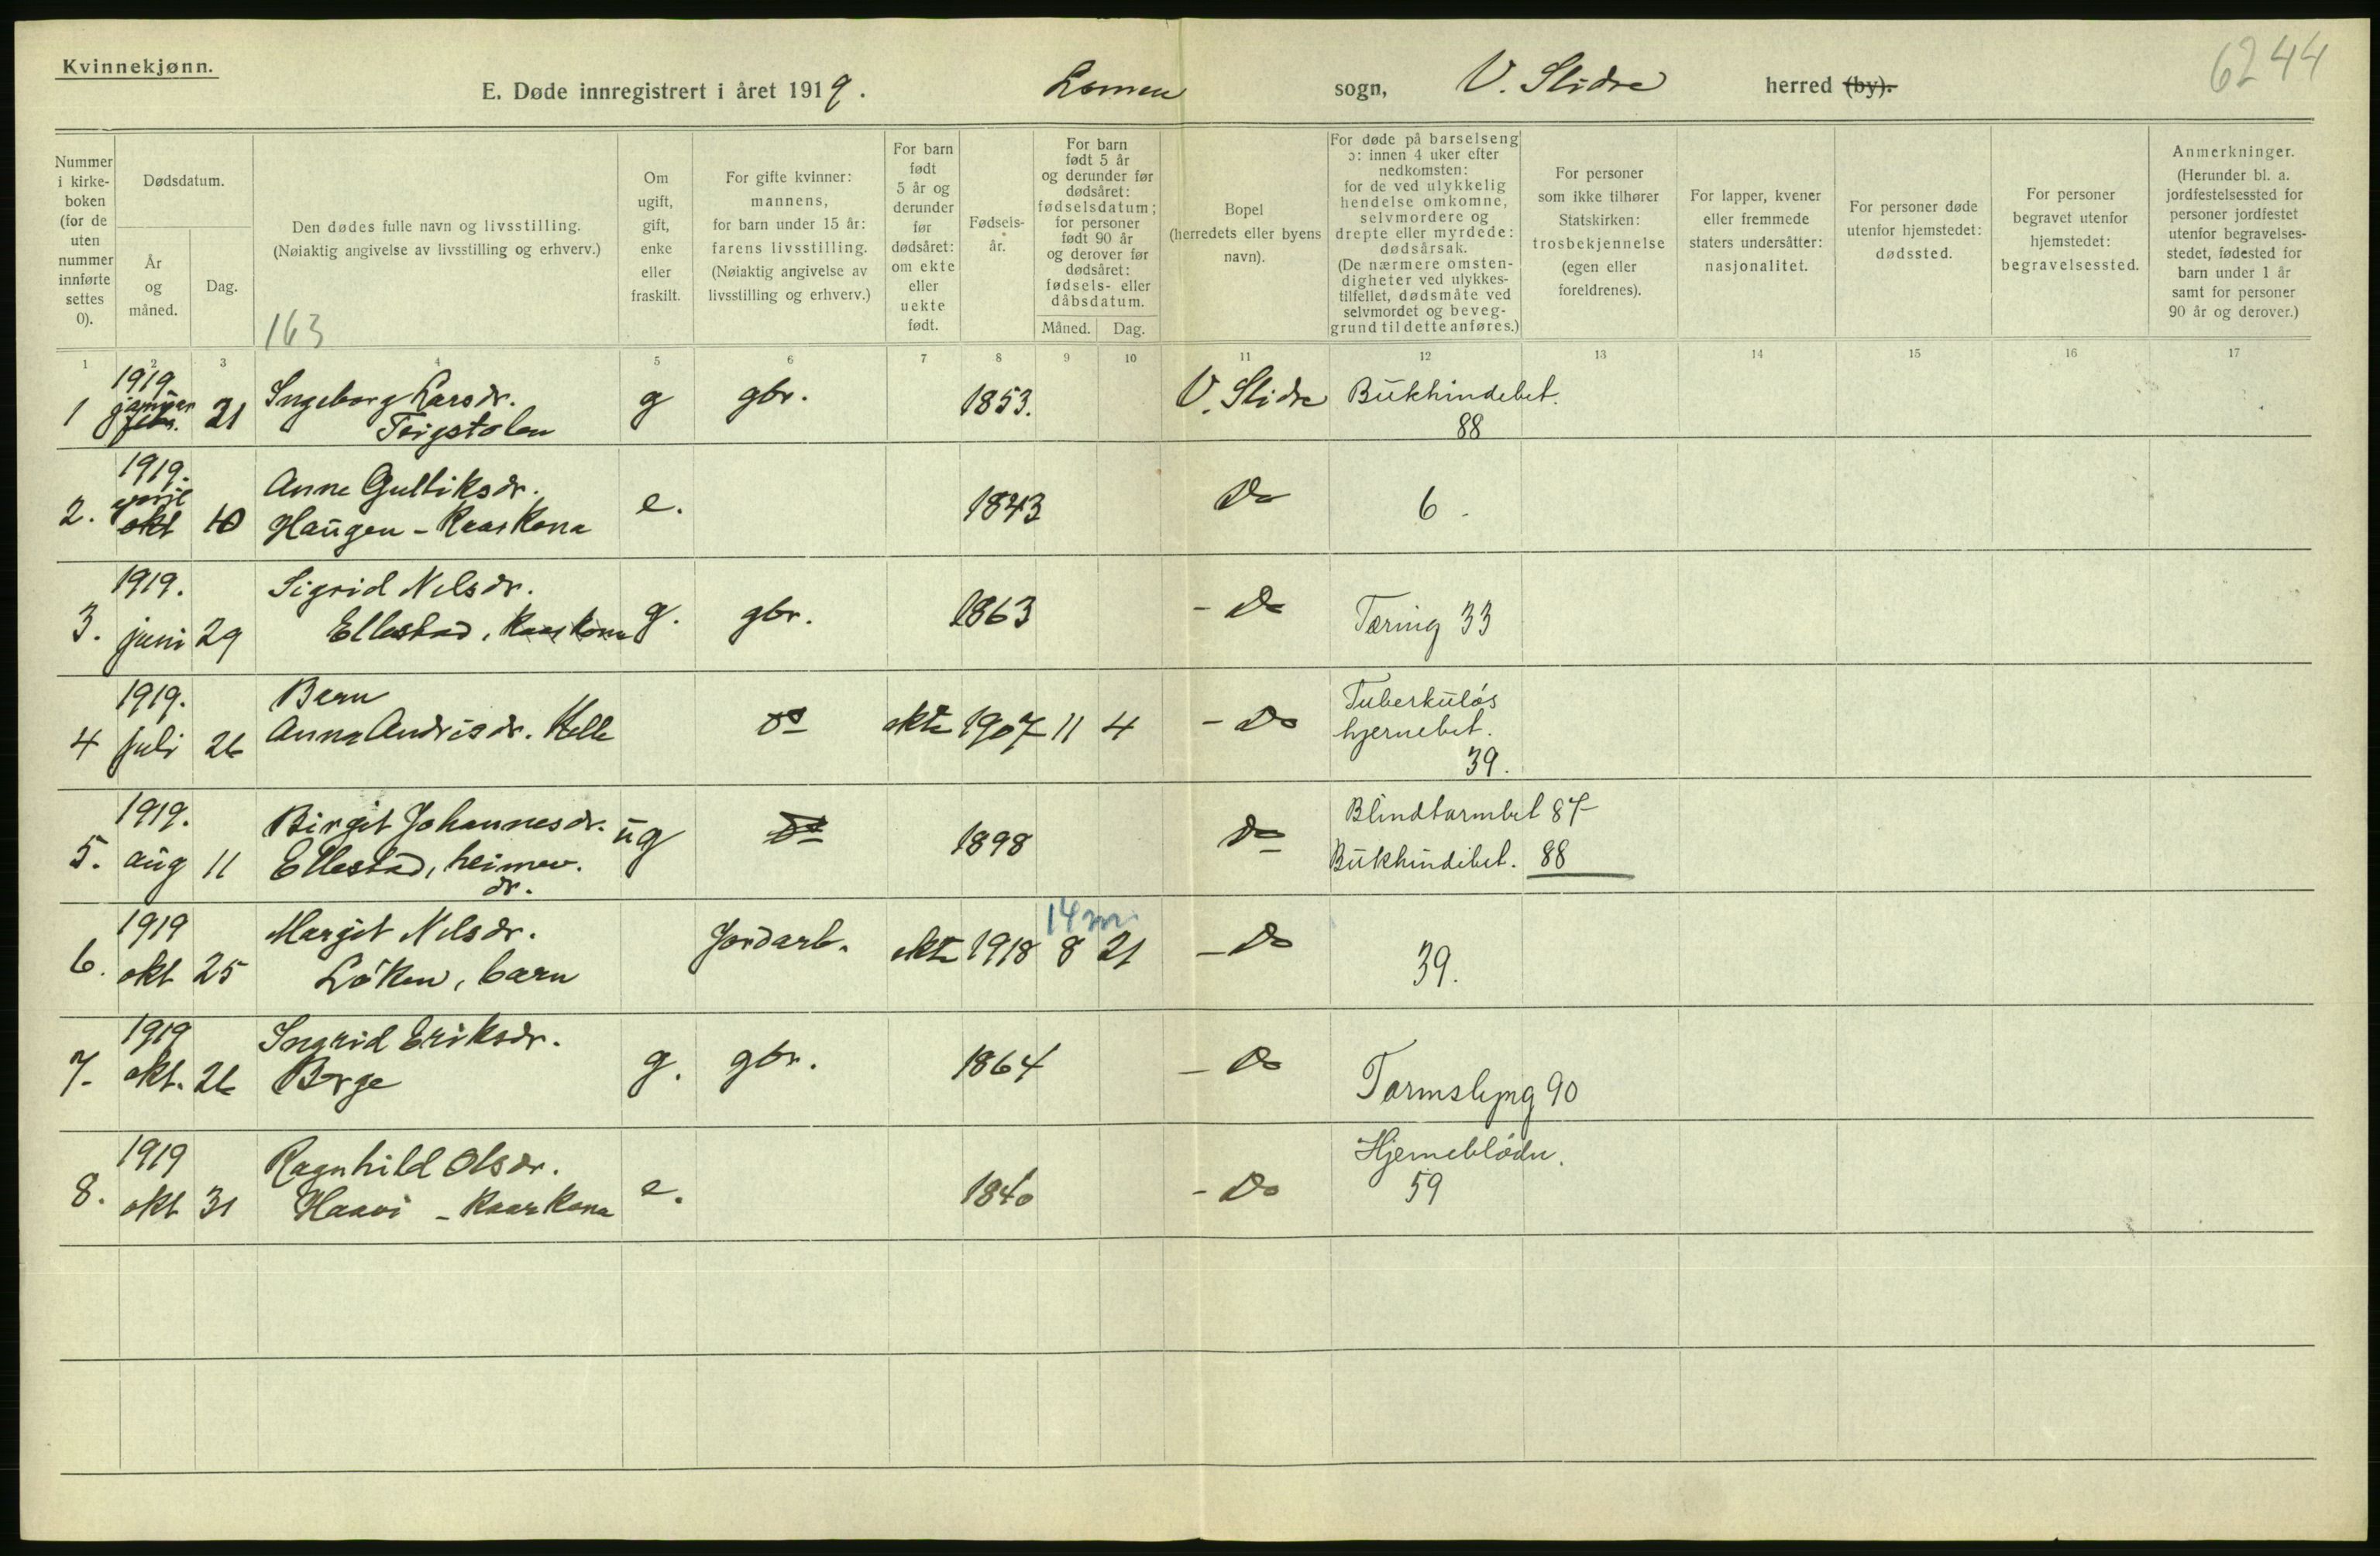 Kvinnekjønn.
E. Døde innregistrert i året 1919. Lomen sogn, V. Slidre herred (by).
6244
Nummer i kirke-boken (for de uten nummer innførte settes 0).
Dødsdatum.
År og måned.
Dag.
Den dødes fulle navn og livsstilling.
(Nøiaktig angivelse av livsstilling og erhverv.)
163
Om ugift, gift, enke eller fraskilt.
For gifte kvinner: mannens, for barn under 15 år: farens livsstilling. (Nøiaktig angivelse av livsstilling og erhverv.)
For barn født 5 år og derunder før dødsåret: om ekte eller uekte født.
Fødsels-år.
For barn født 5 år og derunder før dødsåret: fødselsdatum; for personer født 90 år og derover før dødsåret: fødsels- eller dåbsdatum.
Måned. Dag.
Bopel (herredets eller byens navn).
For døde på barselseng ɔ: innen 4 uker efter nedkomsten: for de ved ulykkelig hendelse omkomne, selvmordere og drepte eller myrdede: dødsårsak. (De nærmere omsten-digheter ved ulykkes-tilfellet, dødsmåte ved selvmordet og beveg-grund til dette anføres.)
For personer som ikke tilhører Statskirken: trosbekjennelse (egen eller foreldrenes).
For lapper, kvener eller fremmede staters undersåtter: nasjonalitet.
For personer døde utenfor hjemstedet: dødssted.
For personer begravet utenfor hjemstedet: begravelsessted.
Anmerkninger. (Herunder bl. a. jordfestelsessted for personer jordfestet utenfor begravelses-stedet, fødested for barn under 1 år samt for personer 90 år og derover.)
1 2 3 4 5 6 7 8 9 10 11 12 13 14 15 16 17
1 1919. januar febr. 21 Ingeborg Larsdr. g gbr. 1853. V. Slidre Bukhindebet. 88
2. 1919. april okt 10 Anne Gulliksdr. Haugen - Kaarkona e. 1843 Do 6.
3. 1919. juni 29 Sigrid Nilsdr. Ellestad, Kaarkona g. gbr. 1863 - Do Tæring 33
4 1919. juli 26 Barn Anna Andrisdr. Helle do ekte 1907 11 4 - Do Tuberkuløs hjernebet. 39.
5. 1919. aug 11 Birgit Johannesdr. Ellestad, heimev. dr. ug do 1898 Do Blindtarmbet 87 Bukhindebet. 88
6. 1919 okt 25 Margit Nilsdr. Løken, barn Jordarb. ekte 1918 14 m 8 21 - Do 39.
7. 1919 okt. 26 Ingrid Eriksdr. g. gbr. 1864 - Do Tarmslyng 90
8. 1919 okt 31 Ragnhild Olsdr. Haavi - Kaarkona e. 1840 - Do Hjerneblødn. 59